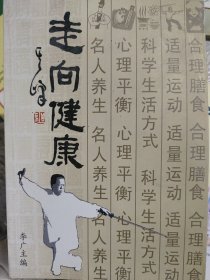 合理膳食 合理膳食 合理膳食
适量运动 适量运动 适量运动
科学生活方式 科学生活方式
心理平衡 心理平衡 心理平衡
名人养生 名人养生 名人养生
走向健康
李广主编